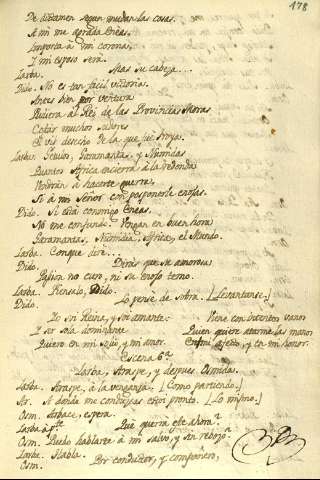 178
De dictamen segun mudan las cosas.
A mi me agrada Eneas,
Importa à mi corona,
Y mi esposo será.
Iarba. Mas su cabeza...
Dido. No es tan facil victoria.
Antes bien por ventura
Pudiera al Rey de las Provincias Moras
Costar muchos sudores
El vil desecho de la que fue Troya.
Iarba. Getulos, Garamantas, y Numidas
Quantos Africa encierra à la redonda
Vendrán à hacerte guerra,
Si à mi Señor con posponerle enojas.
Dido. Si està conmigo Eneas,
No me confundo. Vengan en buen hora
Garamantas, Numidia, Africa, el Mundo.
Iarba. Conque diré...
Dido. Dirás que su amorosa
Pasion no curo, ni su enojo temo.
Iarba. Piensalo, Dido.
Dido. Lo pensè de sobra. [Levantanse.]
Yo soi Reina, y soi amante:
Y ser sola dominante
Quiero en mi solio, y mi amor.
Viene con intentos vanos
Quien quiere atarme las manos
En mi afecto, y en mi honor.
Escena 6ª
Iarba, Araspe, y despues Osmida.
Iarba. Araspe, à la venganza. [Como partiendo.]
Ar. Si donde me conduzcas estoi pronto. [Lo mismo.]
Osm. Arbace, espera.
Iarba àpte. Què querrà este ahora?
Osm. Puedo hablarte à mi salvo, y sin rebozo?
Iarba. Habla.
Osm. Por conductor, y compañero,